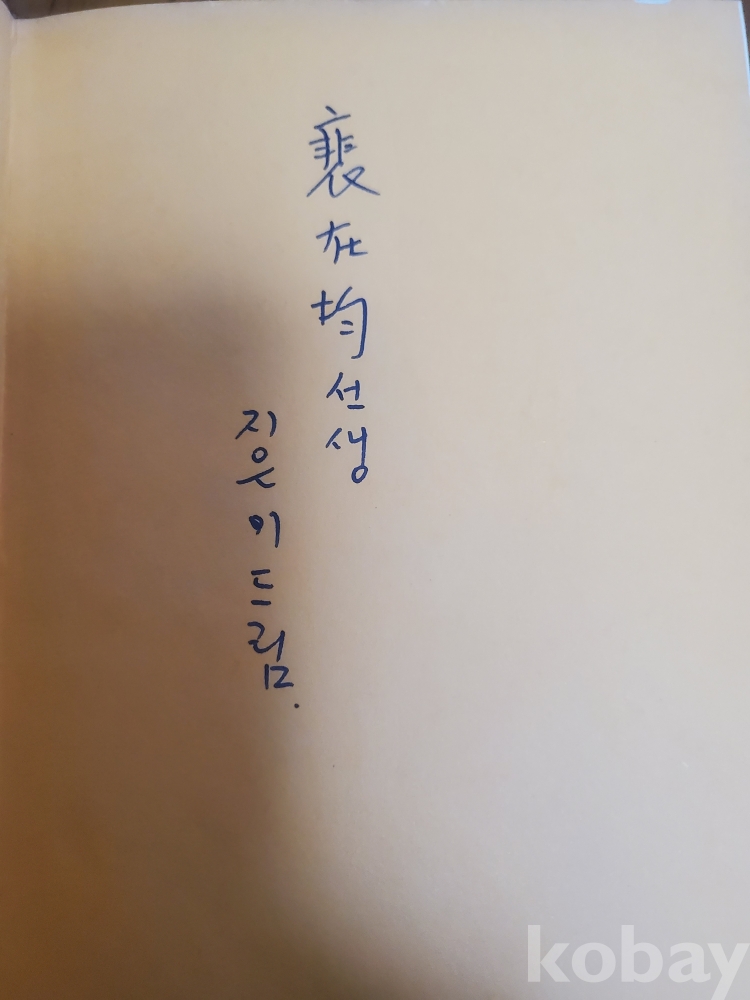 裵在均선생
지은이드림.
kobay